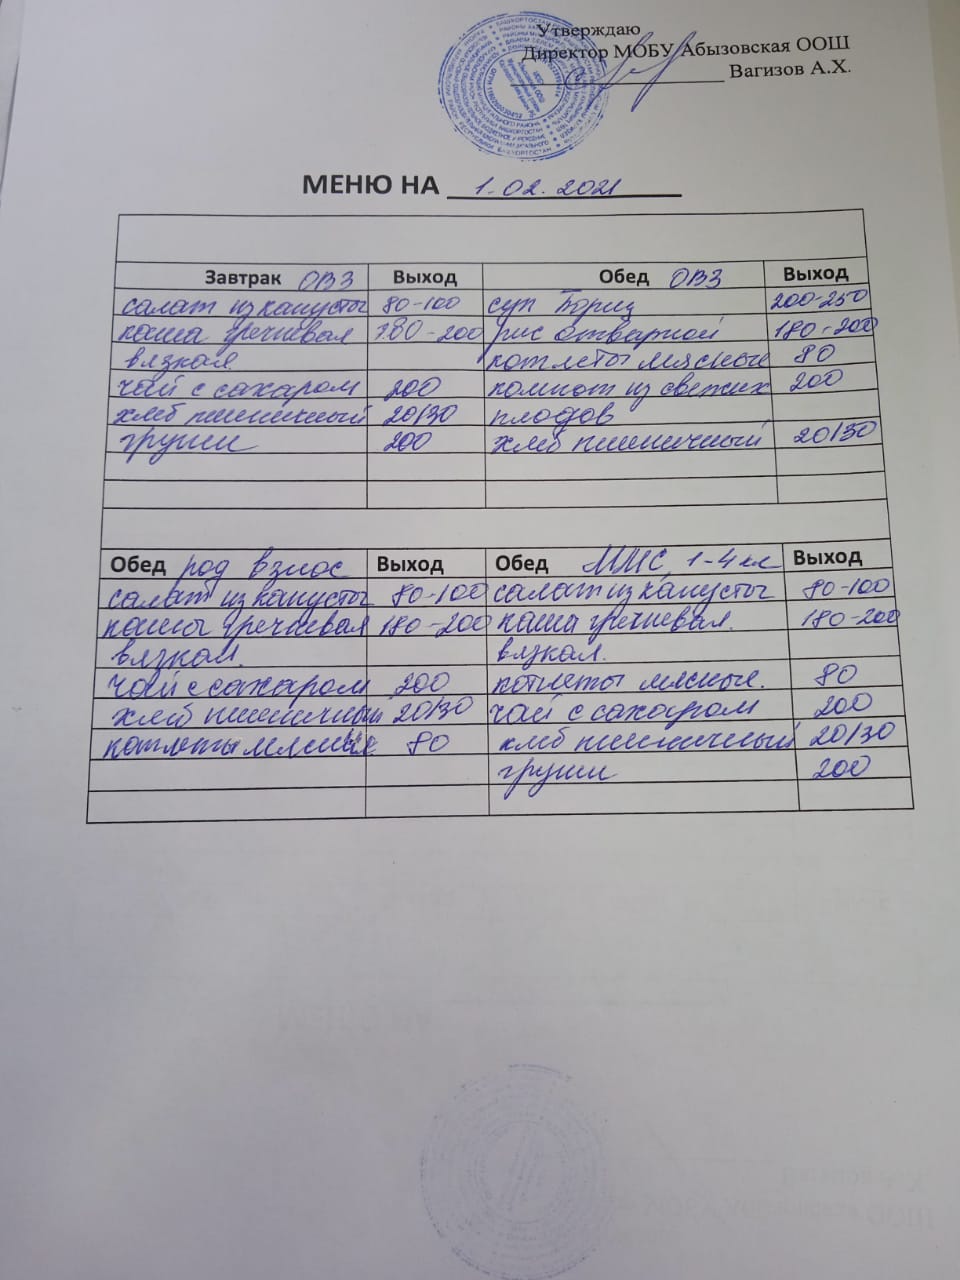 Утверждаю
Директор МОБУ Абызовская ООШ
Вагизов А.Х.
МЕНЮ НА 1.02.2021
Завтрак ОВЗ Выход Обед ОВЗ Выход
салат из капусты 80-100 суп Борщ 200-250
каша гречневая 180-200 рис отварной 180-200
вязкая. котлеты мясные 80
чай с сахаром 200 компот из свежих 200
хлеб пшеничный 20/30 плодов
груши 200 хлеб пшеничный 20/30
Обед род взнос Выход Обед 1-4 кл Выход
салат из капусты 80-100 салат из капусты 80-100
каша гречневая 180-200 каша гречневая. 180-200
вязкая. вязкая.
чай с сахаром 200 котлеты мясные. 80
хлеб пшеничный 20/30 чай с сахаром 200
котлеты мясные 80 хлеб пшеничный 20/30
груши 200